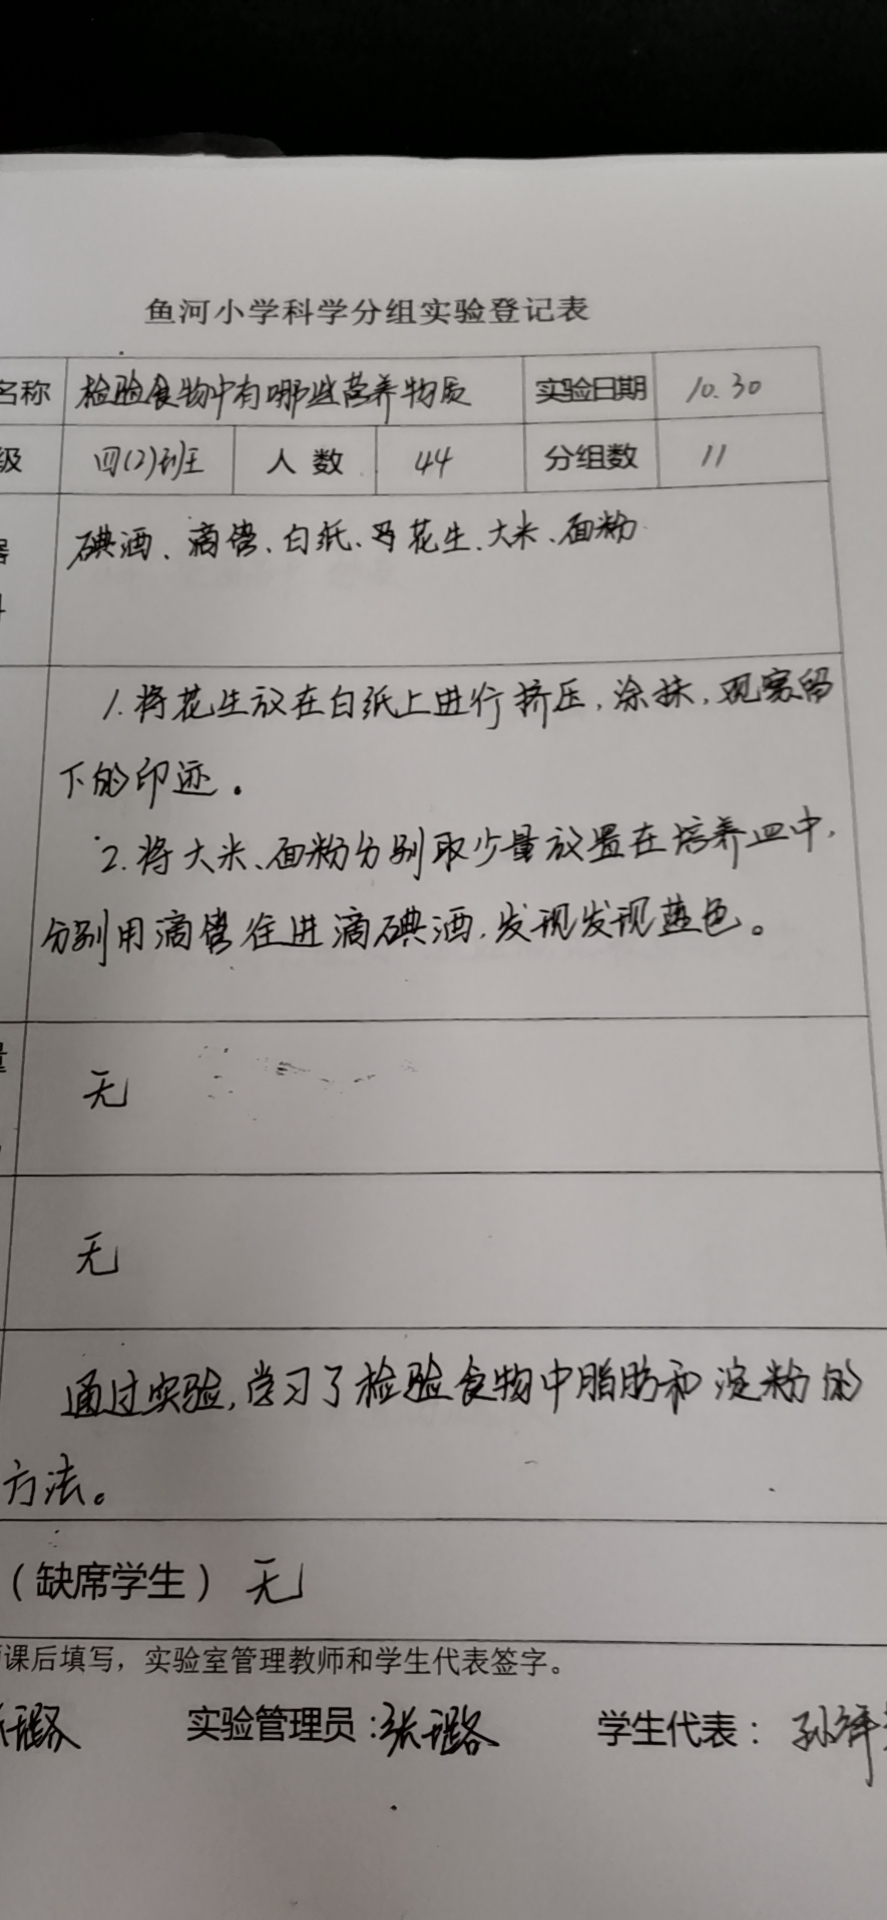 鱼河小学科学分组实验登记表
名称 检验食物中有哪些营养物质 实验日期 10.30
级 四(2)班 人数 44 分组数 11
碘酒、滴管、白纸、花生、大米、面粉
1.将花生放在白纸上进行挤压,涂抹,观察留
下的印迹。
2.将大米、面粉分别取少量放置在培养皿中,
分别用滴管往进滴碘酒,发现发现蓝色。
无
无
通过实验,学习了检验食物中脂肪和淀粉的
方法。
(缺席学生)无
课后填写,实验室管理教师和学生代表签字。
璐 实验管理员:张璐 学生代表: 孙